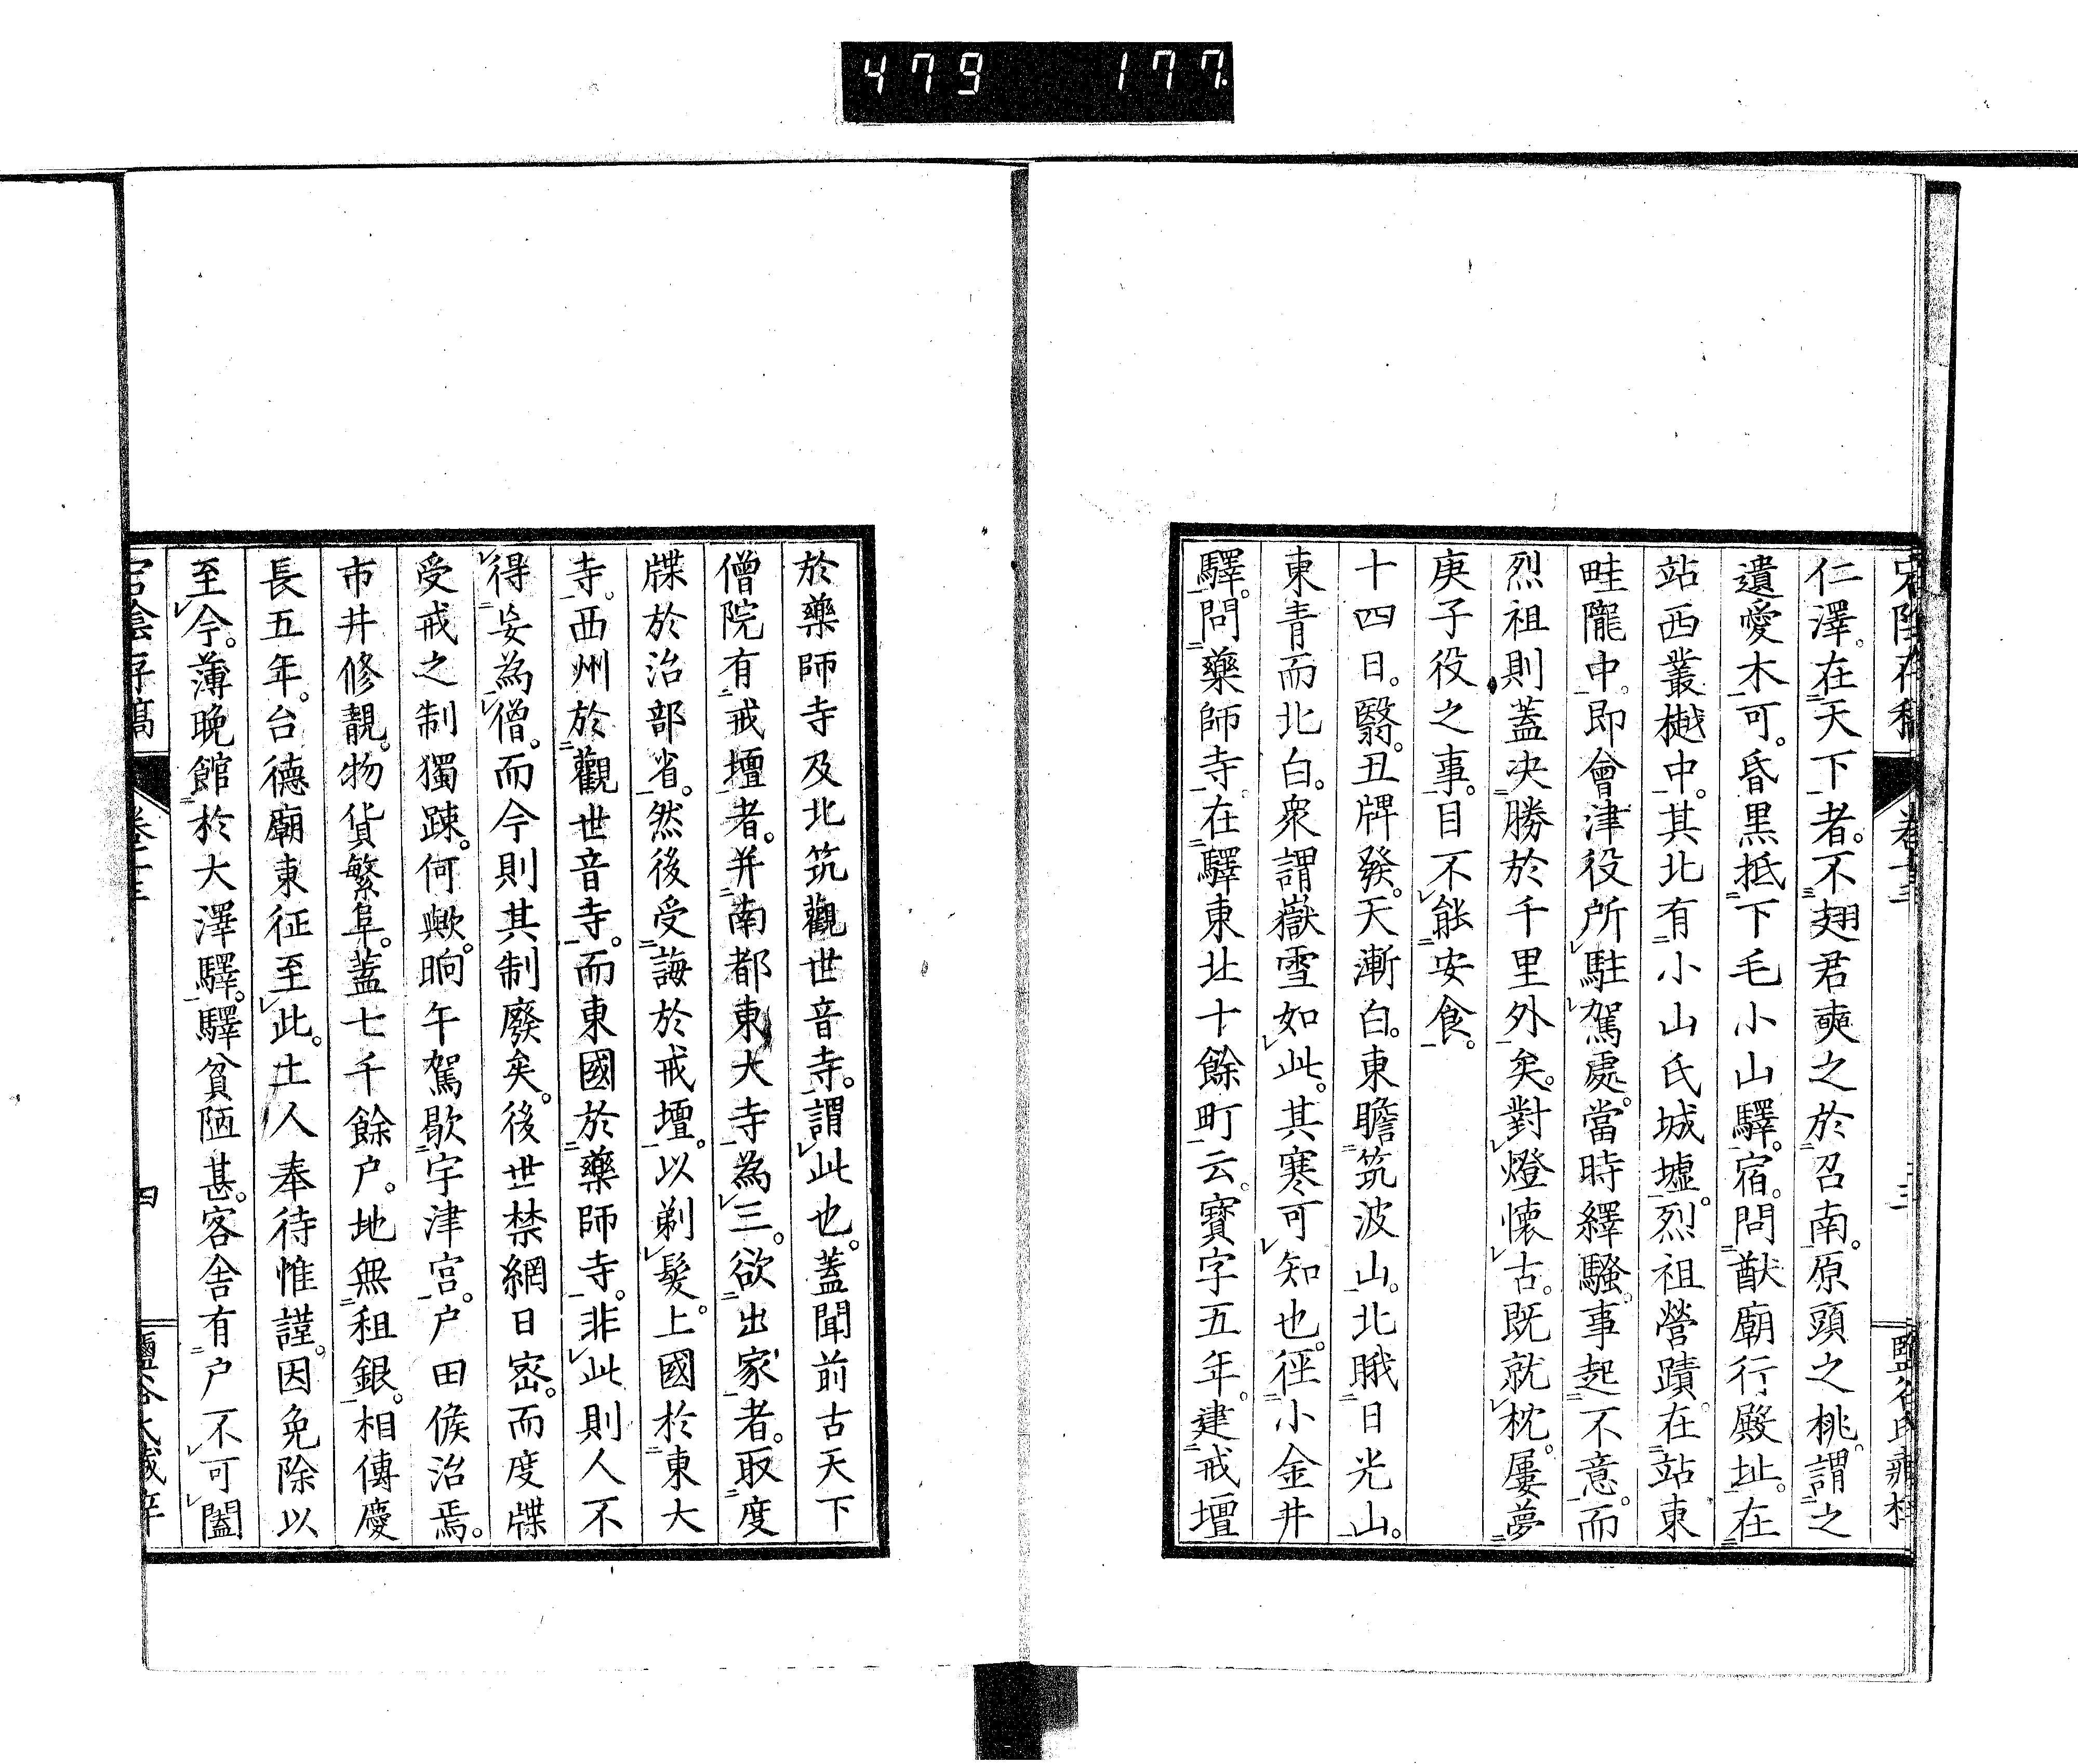 479 177
仁澤。在天下者。不翅君奭之於召南。原頭之桃。謂之
遺愛木可。昏黒抵下毛小山驛。宿。問猷廟行殿址。在
站西叢樾中。其北有小山氏城墟。烈祖營蹟。在站東
畦隴中。即會津役所駐駕處。當時繹騷。事起不意。而
烈祖則蓋决勝於千里外矣。對燈懐古。既就枕。屢夢
庚子役之事。目不能安食。
十四日。翳。丑牌發。天漸白。東瞻筑波山。北眺日光山。
東青而北白。衆謂嶽雪如此。其寒可知也。徑小金井
驛。問藥師寺。在驛東北十餘町云。寳字五年。建戒壇
於藥師寺及北筑觀世音寺。謂此也。蓋聞前古天下
僧院有戒壇者。并南都東大寺為三。欲出家者。取度
牒於治部省。然後受誨於戒壇。以剃髮。上國於東大
寺。西州於觀世音寺。而東國於藥師寺。非此則人不
得妄為僧。而今則其制廢矣。後世禁網日密。而度牒
受戒之制獨踈。何歟。晌午駕歇宇津宮。户田侯治焉。
市井修靚。物貨繁阜。蓋七千餘户。地無租銀。相傳慶
長五年。台德廟東征至此。土人奉待惟謹。因免除以
至今。薄晩館於大澤驛。驛貧陋甚。客舍有户不可闔
宕陰存稿
卷十三
三
四